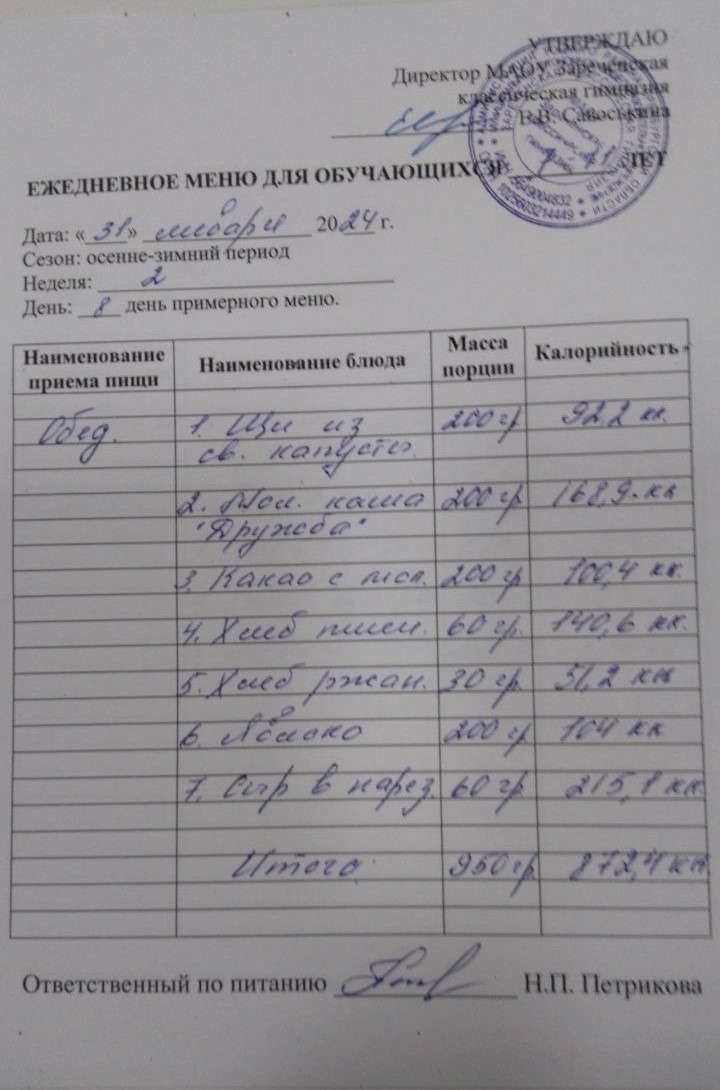 УТВЕРЖДАЮ
Директор МАОУ Зареченская
классическая гимназия
В.В. Савоськина
ЕЖЕДНЕВНОЕ МЕНЮ ДЛЯ ОБУЧАЮЩИХСЯ 7-11 ЛЕТ
Дата: «31» января 2024 г.
Сезон: осенне-зимний период
Неделя: 2
День: 8 день примерного меню.
Наименование приема пищи Наименование блюда Масса порции Калорийность
Обед. 1. Щи из 200 гр 92,2 кк.
св. капусты.
2. Мол. каша 200 гр 168,9 кк
"Дружба"
3. Какао с мол. 200 гр 100,4 кк.
4. Хлеб пшен. 60 гр. 140,6 кк.
5. Хлеб ржан. 30 гр. 51,2 кк
6. Яблоко 200 гр 104 кк
7. Сыр в нарез. 60 гр 215,1 кк.
Итого 950 гр 872,4 кк
Ответственный по питанию Н.П. Петрикова